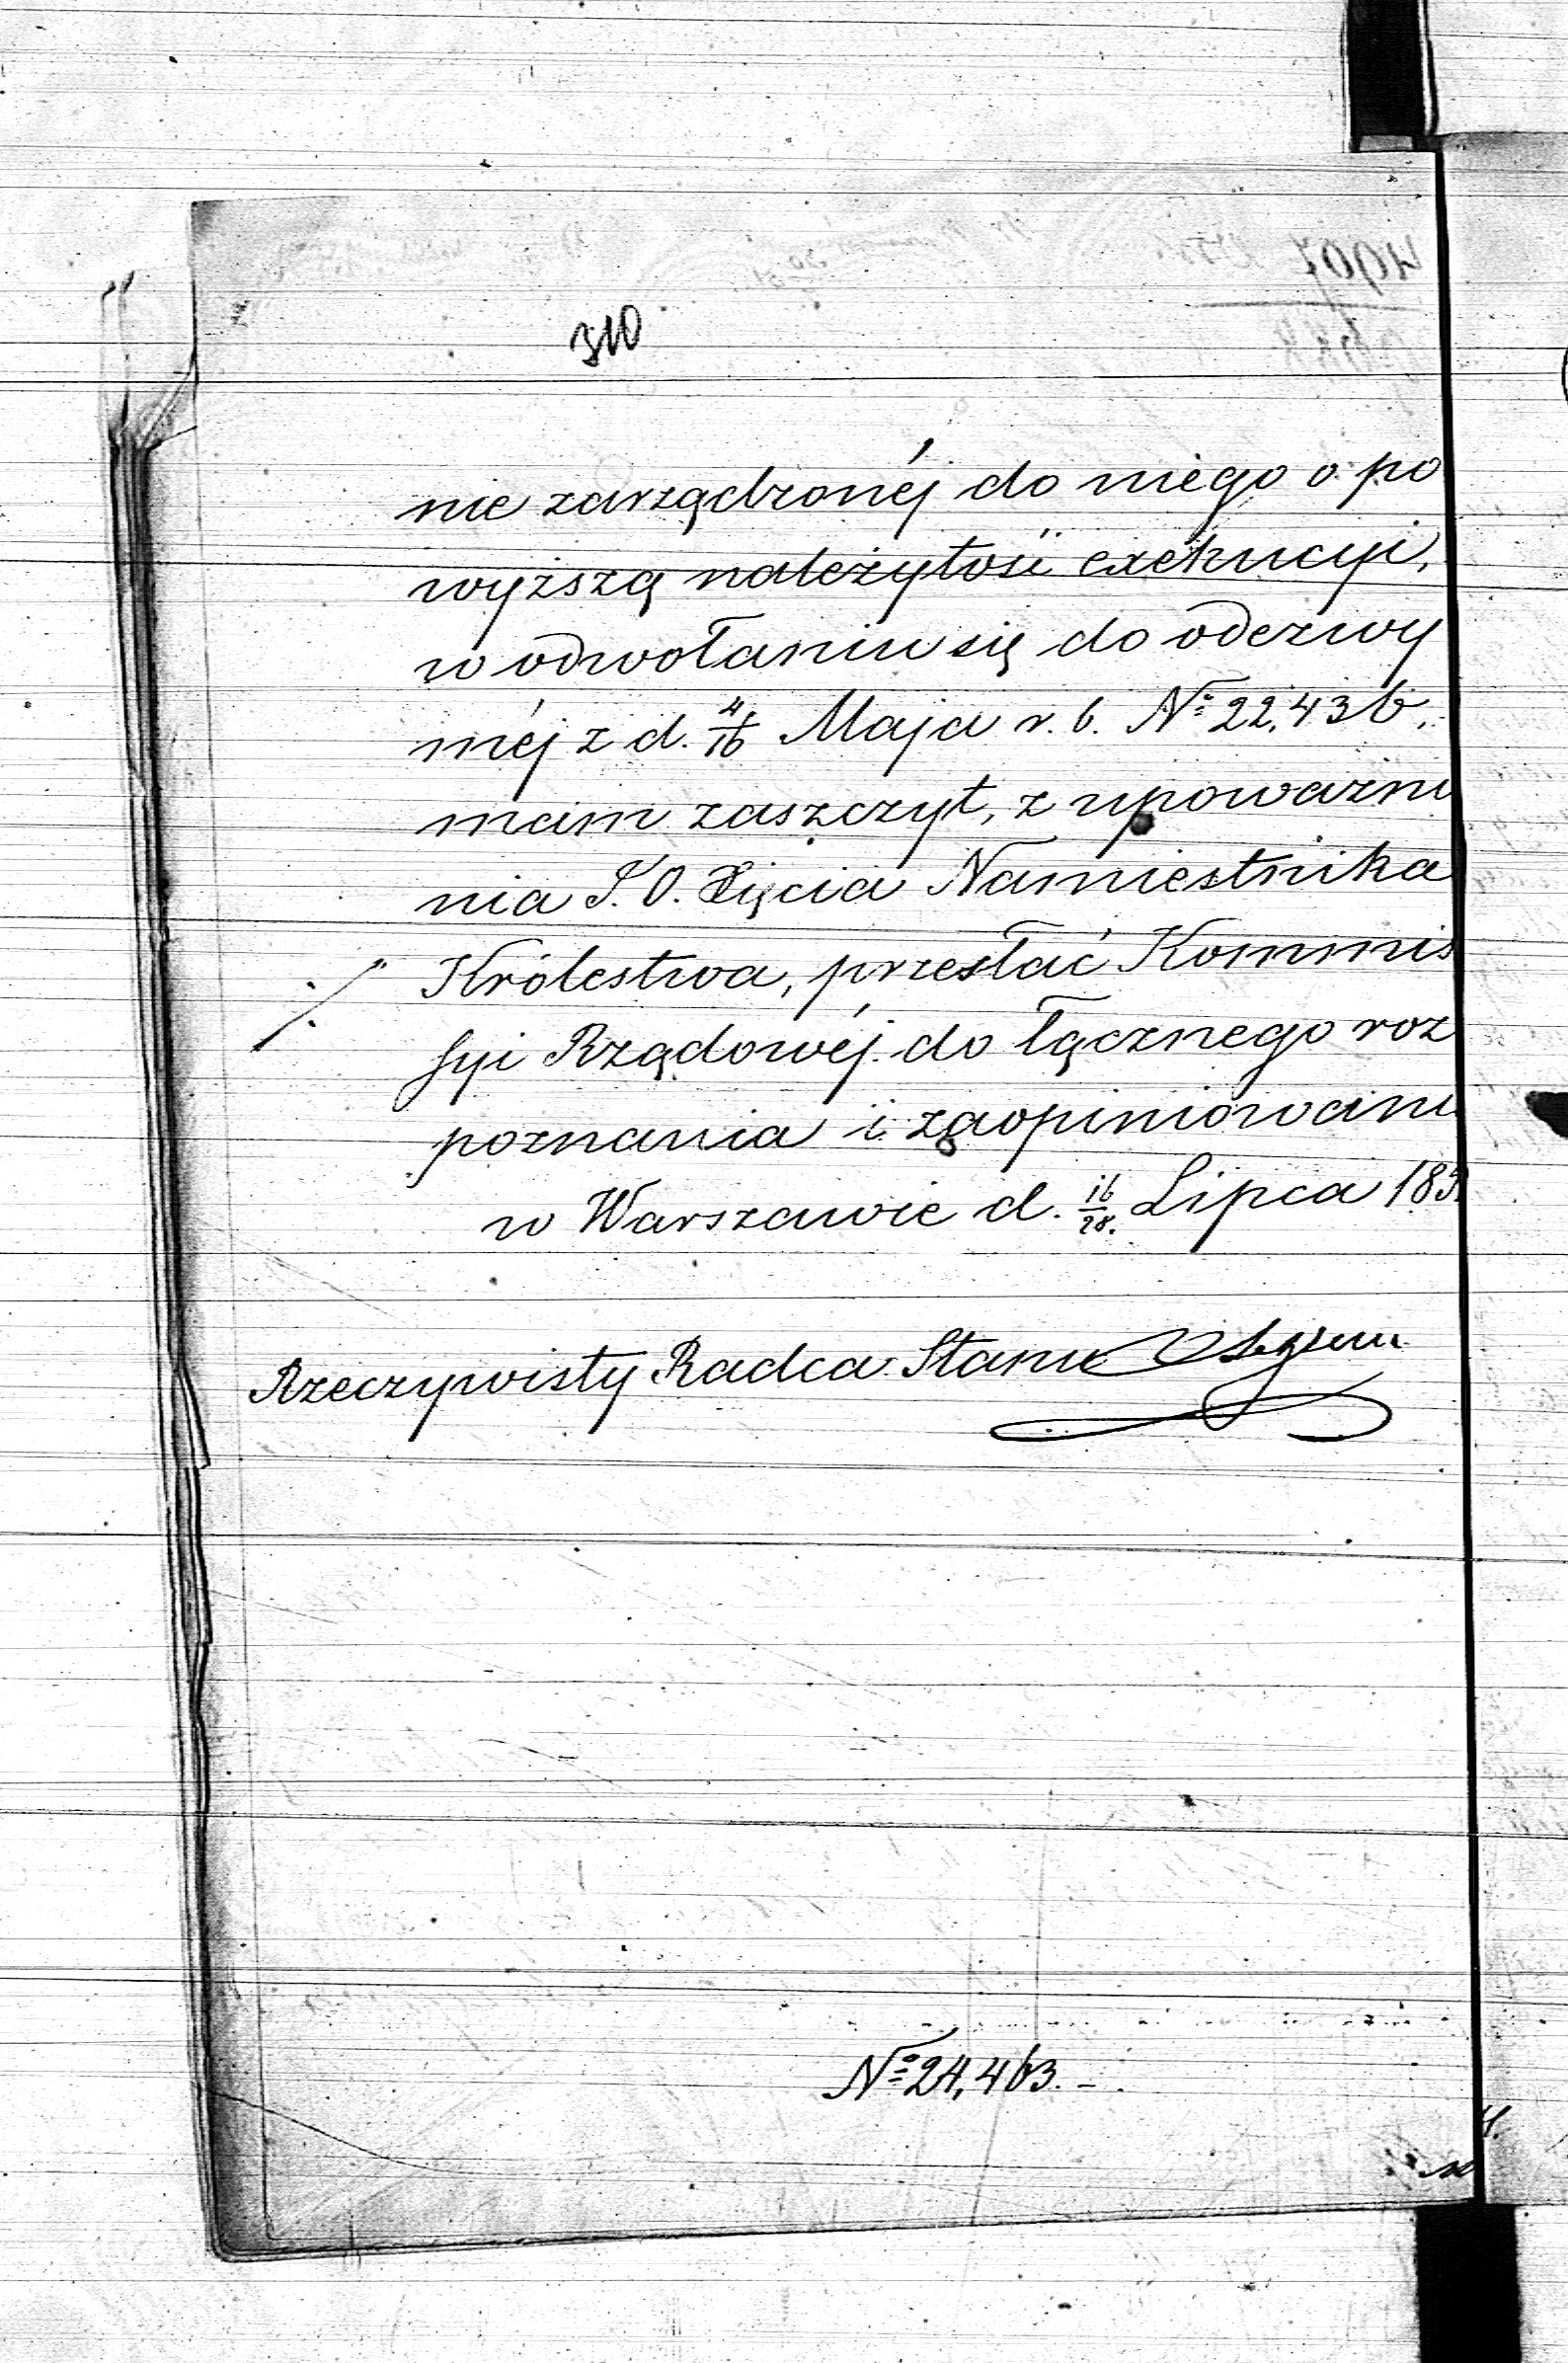 310
nie zarządzonéj do niego o po
wyższą należytość exekucyi,
w odwołaniu się do odezwy
méj z d. 4/16 Maja r. b. № 22,436,
mam zaszczyt, z upoważnie
nia J. O. Xięcia Namiestnika
Królestwa, przesłać Kommis
syi Rządowéj do łącznego roz
poznania i zaopiniowani
w Warszawie d. 16/28. Lipca 185
Rzeczywisty Radca Stanu
№ 24,463.-